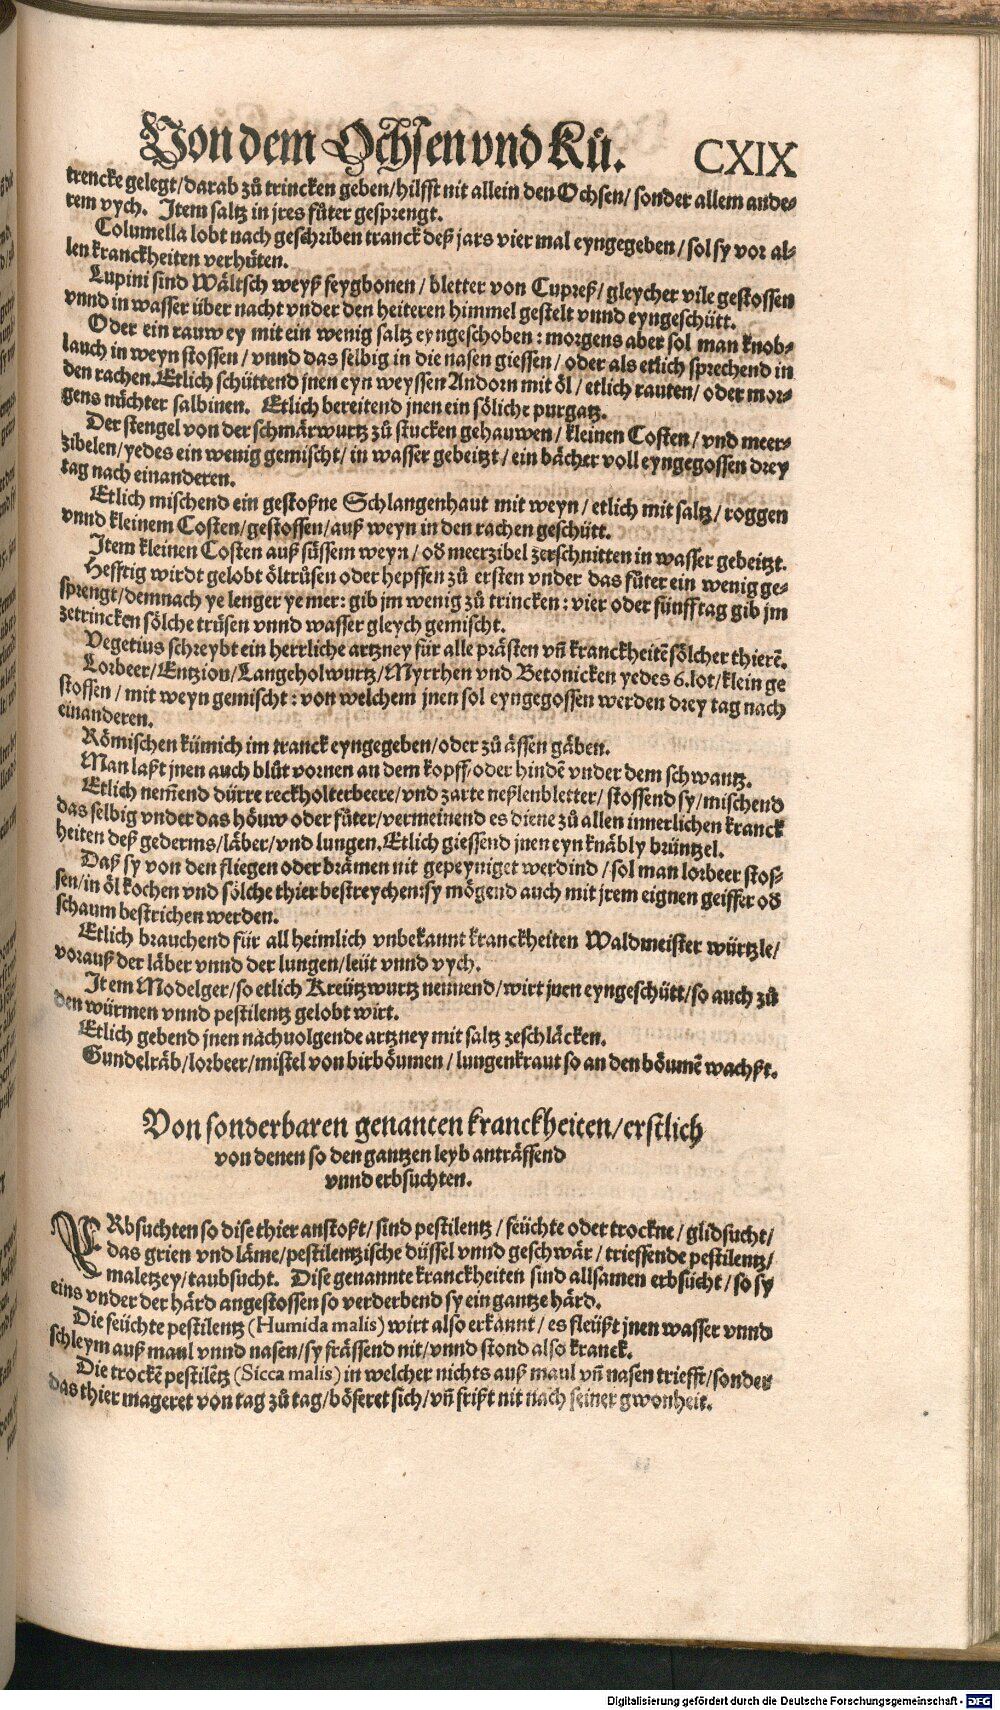 Von dem Ochsen vnd Ků. CXIX
trencke gelegt/darab zů trincken geben/hilfft nit allein den Ochsen/ sonder allem ande-
rem vych. Jtem saltz in jres fůter gesprengt.
Columella lobt nach geschriben tranck deß jars vier mal eyngegeben/ sol sy vor al-
len kranckheiten verhüten.
Lupini sind Wältsch weyß feygbonen/ bletter von Cupreß/ gleycher vile gestossen
vnnd in wasser über nacht vnder den heiteren himmel gestelt vnnd eyngeschütt.
Oder ein rauw ey mit ein wenig saltz eyngeschoben: morgens aber sol man knob-
lauch in weyn stossen/ vnnd das selbig in die nasen giessen/ oder als etlich sprechend in
den rachen. Etlich schüttend jnen eyn weyssen Andorn mit öl/ etlich rauten/ oder mor-
gens nüchter salbinen. Etlich bereitend jnen ein söliche purgatz.
Der stengel von der schmärwurtz zů stucken gehauwen/ kleinen Costen/ vnd meer-
zibelen/ yedes ein wenig gemischt/ in wasser gebeitzt/ ein bächer voll eyngegossen drey
tag nach einanderen.
Etlich mischend ein gestoßne Schlangenhaut mit weyn/ etlich mit saltz/ roggen
vnnd kleinem Costen/ gestossen/ auß weyn in den rachen geschütt.
Jtem kleinen Costen auß süssem weyn/ od meerzibel zerschnitten in wasser gebeitzt.
Hefftig wirdt gelobt öltrůsen oder hepffen zů ersten vnder das fůter ein wenig ge-
sprengt/ demnach ye lenger ye mer: gib jm wenig zů trincken: vier oder fünff tag gib jm
zetrincken sölche trůsen vnnd wasser gleych gemischt.
Vegetius schreybt ein herrliche artzney für alle prästen vñ kranckheitẽ sölcher thierẽ.
Lorbeer/ Entzion/ Langeholwurtz/ Myrrhen vnd Betonicken yedes 6. lot/ klein ge
stossen/ mit weyn gemischt: von welchem jnen sol eyngegossen werden drey tag nach
einanderen.
Römischen kümich im tranck eyngegeben/ oder zů ässen gäben.
Man laßt jnen auch blůt vornen an dem kopff/ oder hindẽ vnder dem schwantz.
Etlich nem̃end dürre reckholterbeere/ vnd zarte neßlenbletter/ stossend sy/ mischend
das selbig vnder das höuw oder fůter/ vermeinend es diene zů allen innerlichen kranck
heiten deß gederms/ läber/ vnd lungen. Etlich giessend jnen eyn knäbly brüntzel.
Daß sy von den fliegen oder brämen nit gepeyniget werdind/ sol man lorbeer stoß-
sen/ in öl kochen vnd sölche thier bestreychen: sy mögend auch mit jrem eignen geiffer od
schaum bestrichen werden.
Etlich brauchend für all heimlich vnbekannt kranckheiten Waldmeister würtzle/
vorauß der läber vnnd der lungen/ leüt vnnd vych.
Jtem Modelger/ so etlich Kreützwurtz nennend/ wirt jnen eyngeschütt/ so auch zů
den würmen vnnd pestilentz gelobt wirt.
Etlich gebend jnen nachuolgende artzney mit saltz zeschläcken.
Gundelräb/ lorbeer/ mistel von birböumen/ lungenkraut so an den böumẽ wachßt.
Von sonderbaren genanten kranckheiten/ erstlich
von denen so den gantzen leyb anträffend
vnnd erbsuchten.
ERbsuchten so dise thier anstoßt/ sind pestilentz/ feüchte oder trockne/ glidsucht/
das grien vnd läme/ pestilentzische düssel vnnd geschwär/ triessende pestilentz/
maletzey/ taubsucht. Dise genannte kranckheiten sind allsamen erbsücht/ so sy
eins vnder der härd angestossen so verderbend sy ein gantze härd.
Die feüchte pestilentz (Humida malis) wirt also erkannt/ es fleüßt jnen wasser vnnd
schleym auß maul vnnd nasen/ sy frässend nit/ vnnd stond also kranck.
Die trockẽ pestilẽtz (Sicca malis) in welcher nichts auß maul vñ nasen triefft/ sonder
das thier mageret von tag zů tag/ böseret sich/ vñ frißt nit nach seiner gwonheit.
Digitalisierung gefördert durch die Deutsche Forschungsgemeinschaft - DFG